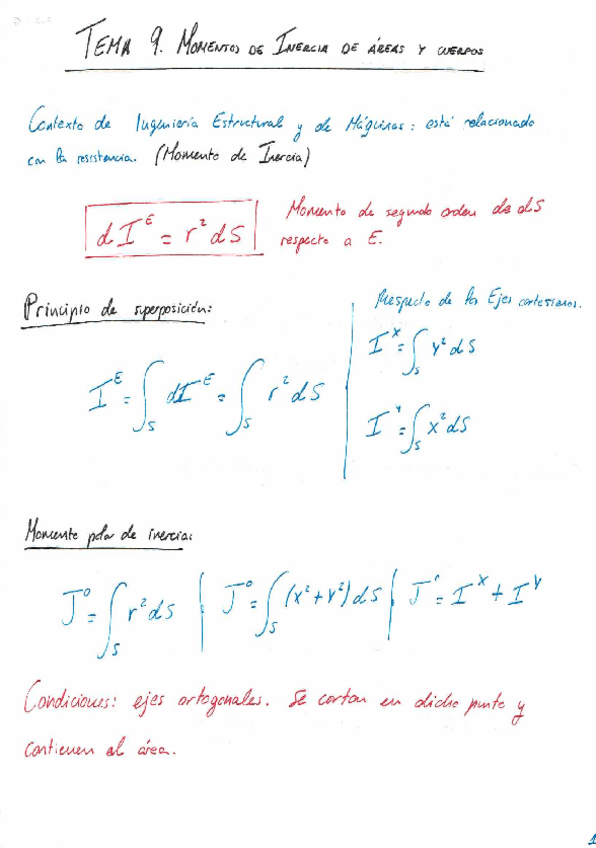 TEMA 9. MOMENTOS DE INERCIA DE ÁREAS Y CUERPOS
Contexto de Ingeniería Estructural y de Máquinas: está relacionado
con la resistencia. (Momento de Inercia)
dI^E = r²dS
Momento de segundo orden de dS
respecto a E.
Principio de superposición:
I^E = ∫_S dI^E = ∫_S r²dS
Respecto de los Ejes cartesianos.
I^X = ∫_S y²dS
I^Y = ∫_S x²dS
Momento polar de inercia:
J^O = ∫_S r²dS | J^O = ∫_S (x²+y²)dS | J^O = I^X + I^Y
Condiciones: ejes ortogonales. Se cortan en dicho punto y
contienen al área.
1